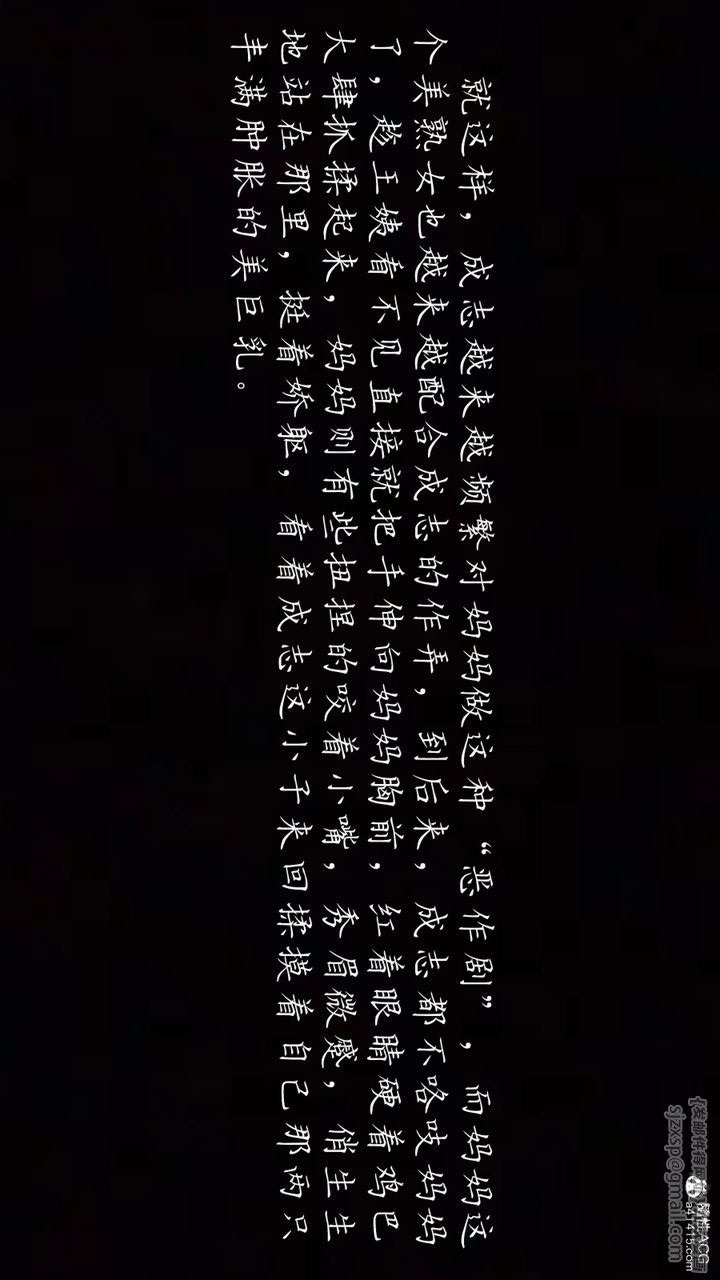 就这样，成志越来越频繁对妈妈做这种“恶作剧”，而妈妈这
个美熟女也越来越配合成志的作弄，到后来，成志都不咯吱妈妈
了，趁王姨看不见直接就把手伸向妈妈胸前，红着眼睛硬着鸡巴
大肆抓揉起来，妈妈则有些扭捏的咬着小嘴，秀眉微蹙，俏生生
地站在那里，挺着娇躯，看着成志这小子来回揉摸着自己那两只
丰满肿胀的美巨乳。
sjzxsp@gmail.com
a41415.com